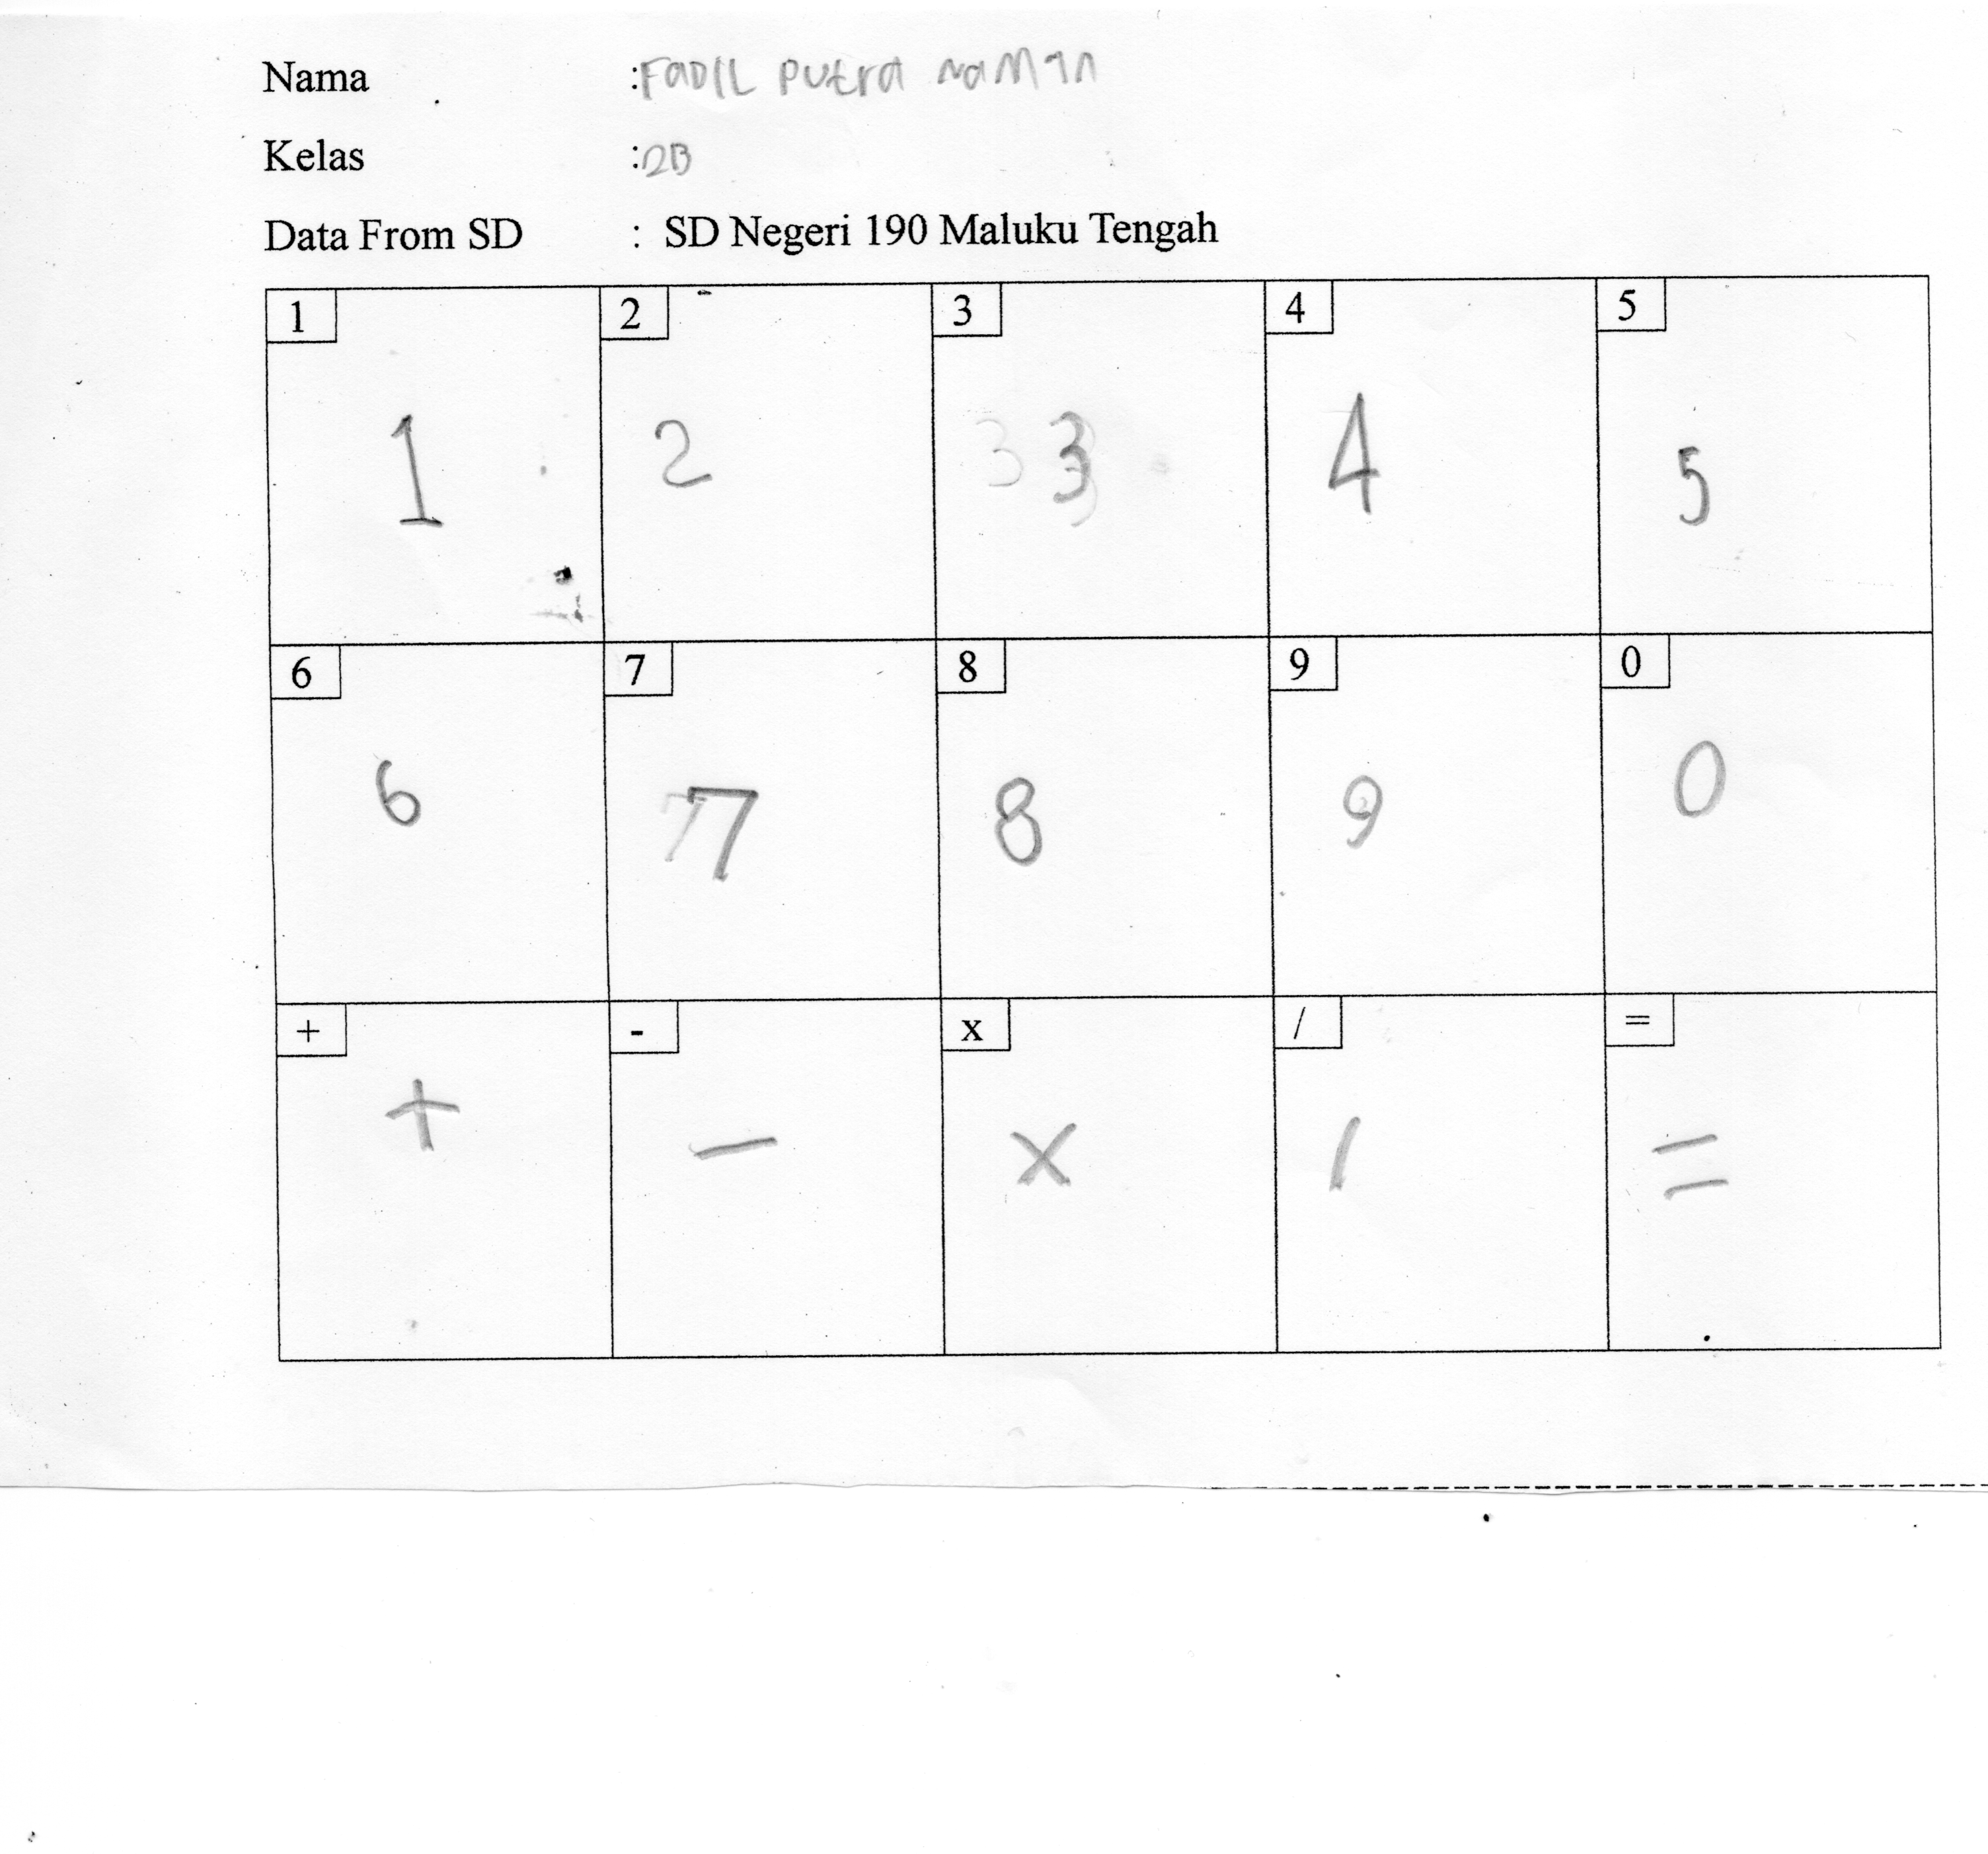 Nama : FaDIL PUtra naMan
Kelas : 2B
Data From SD : SD Negeri 190 Maluku Tengah
1 2 3 4 5
1 2 3 3 4 5
6 7 8 9 0
6 7 7 8 9 0
+ - x / =
+ - x / =